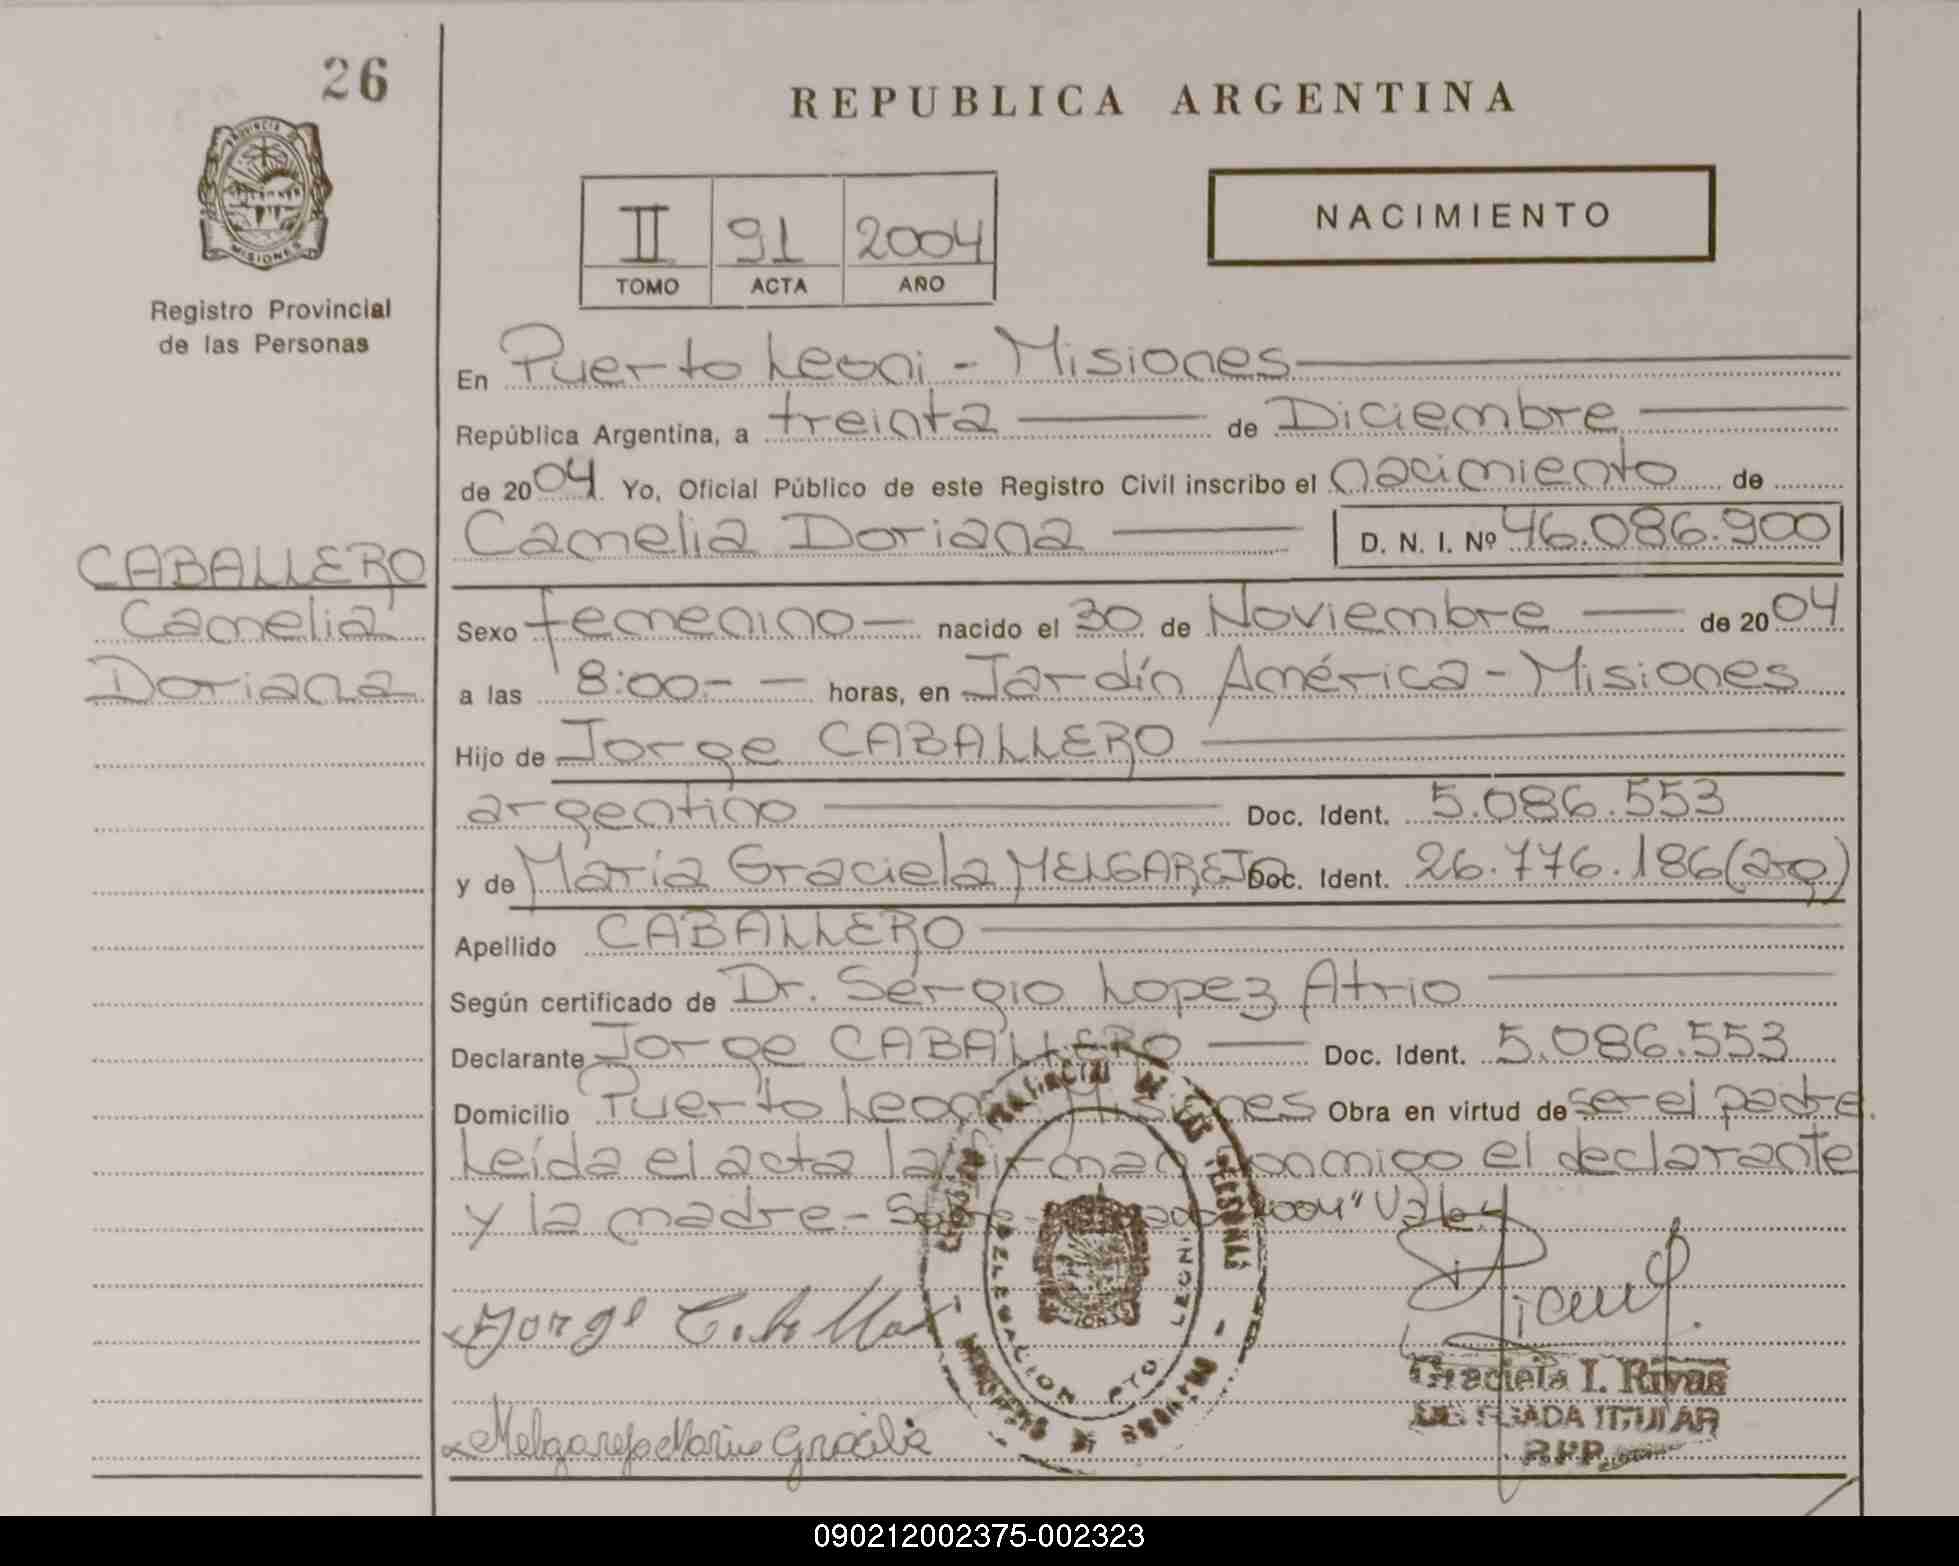 26
REPUBLICA ARGENTINA
PROVINCIA DE
MISIONES
Registro Provincial
de las Personas
II 91 2004
TOMO ACTA AÑO
NACIMIENTO
En Puerto Leoni - Misiones
República Argentina, a treinta de Diciembre
de 2004 Yo, Oficial Público de este Registro Civil inscribo el nacimiento de
Camelia Doriana D. N. I. Nº 46.086.900
CABALLERO
Camelia
Doriana
Sexo femenino nacido el 30 de Noviembre de 2004
a las 8:00- horas, en Jardín América - Misiones
Hijo de Jorge CABALLERO
argentino Doc. Ident. 5.086.553
y de María Graciela MELGAREJO Doc. Ident. 26.776.186 (arg)
Apellido CABALLERO
Según certificado de Dr. Sergio Lopez Atrio
Declarante Jorge CABALLERO Doc. Ident. 5.086.553
Domicilio Puerto Leoni Misiones Obra en virtud de ser el padre.
Leída el acta la firman conmigo el declarante
y la madre.- 2004" Vale
REGISTRO PROVINCIAL DE LAS PERSONAS
DELEGACION PTO LEONI
MINISTERIO DE GOBIERNO
Jorge
Melgarejo Maria Graciela
Graciela I. Rivas
DELEGADA TITULAR
R.P.P.
090212002375-002323